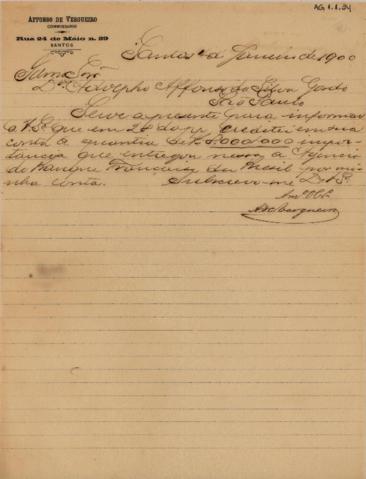 AG 1.1.54
AFFONSO DE VERGUEIRO
COMMISSARIO
Rua 24 de Maio n. 29
SANTOS
Santos de Janeiro de 1900
Illmo Snr
Dr. Adolpho Affonso da Silva Gordo
São Paulo
Serve a presente para informar
a V.Sa que em 24 do pp. creditei em sua
conta a quantia de 000.000 impor-
tancia que entregou a Agencia
do Banque Française du Brésil por mi-
nha conta. Subscrevo-me D V.S.
Vergueiro